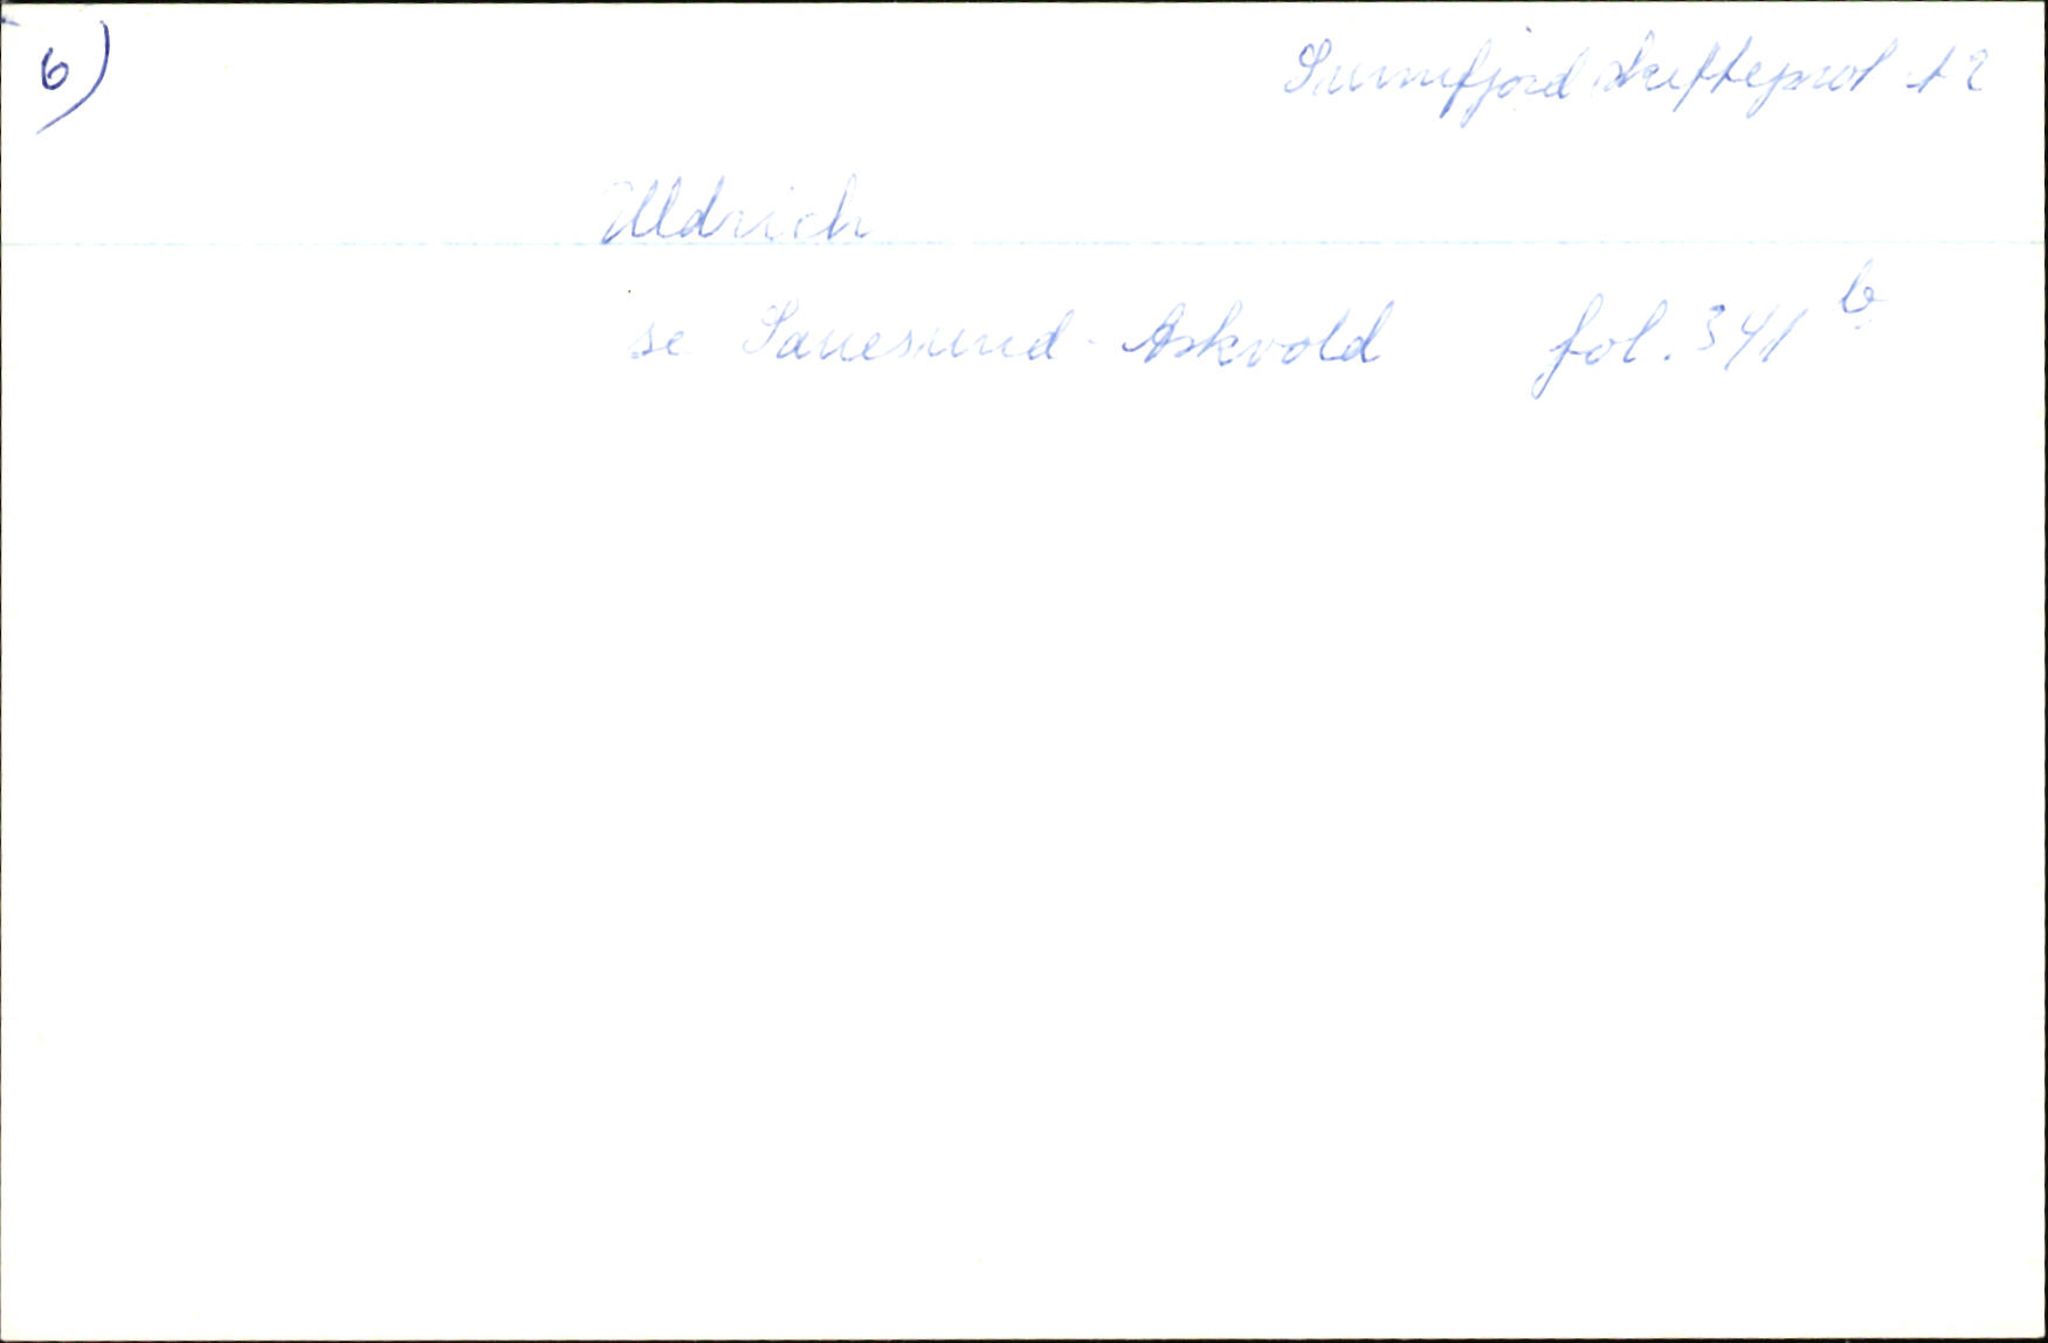 6)
Sunnfjord skifteprot A 2
Uldrich
se Sauesund - Askvold fol. 341 b